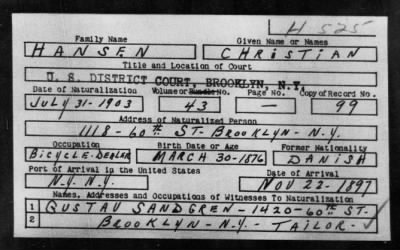 H-525
Family Name Given Name or Names
HANSEN CHRISTIAN
Title and Location of Court
U. S. DISTRICT COURT, BROOKLYN, N.Y.
Date of Naturalization Volume or Bundle No. Page No. Copy of Record No.
JULY 31-1903 43 — 99
Address of Naturalized Person
1118-60th ST. BROOKLYN-N.Y.
Occupation Birth Date or Age Former Nationality
BICYCLE-DEALER MARCH 30-1876 DANISH
Port of Arrival in the United States Date of Arrival
N.Y. N.Y. NOV 22-1897
Names, Addresses and Occupations of Witnesses To Naturalization
1 GUSTAV SANDGREN-1420-60th ST.
2 BROOKLYN-N.Y.-TAILOR-